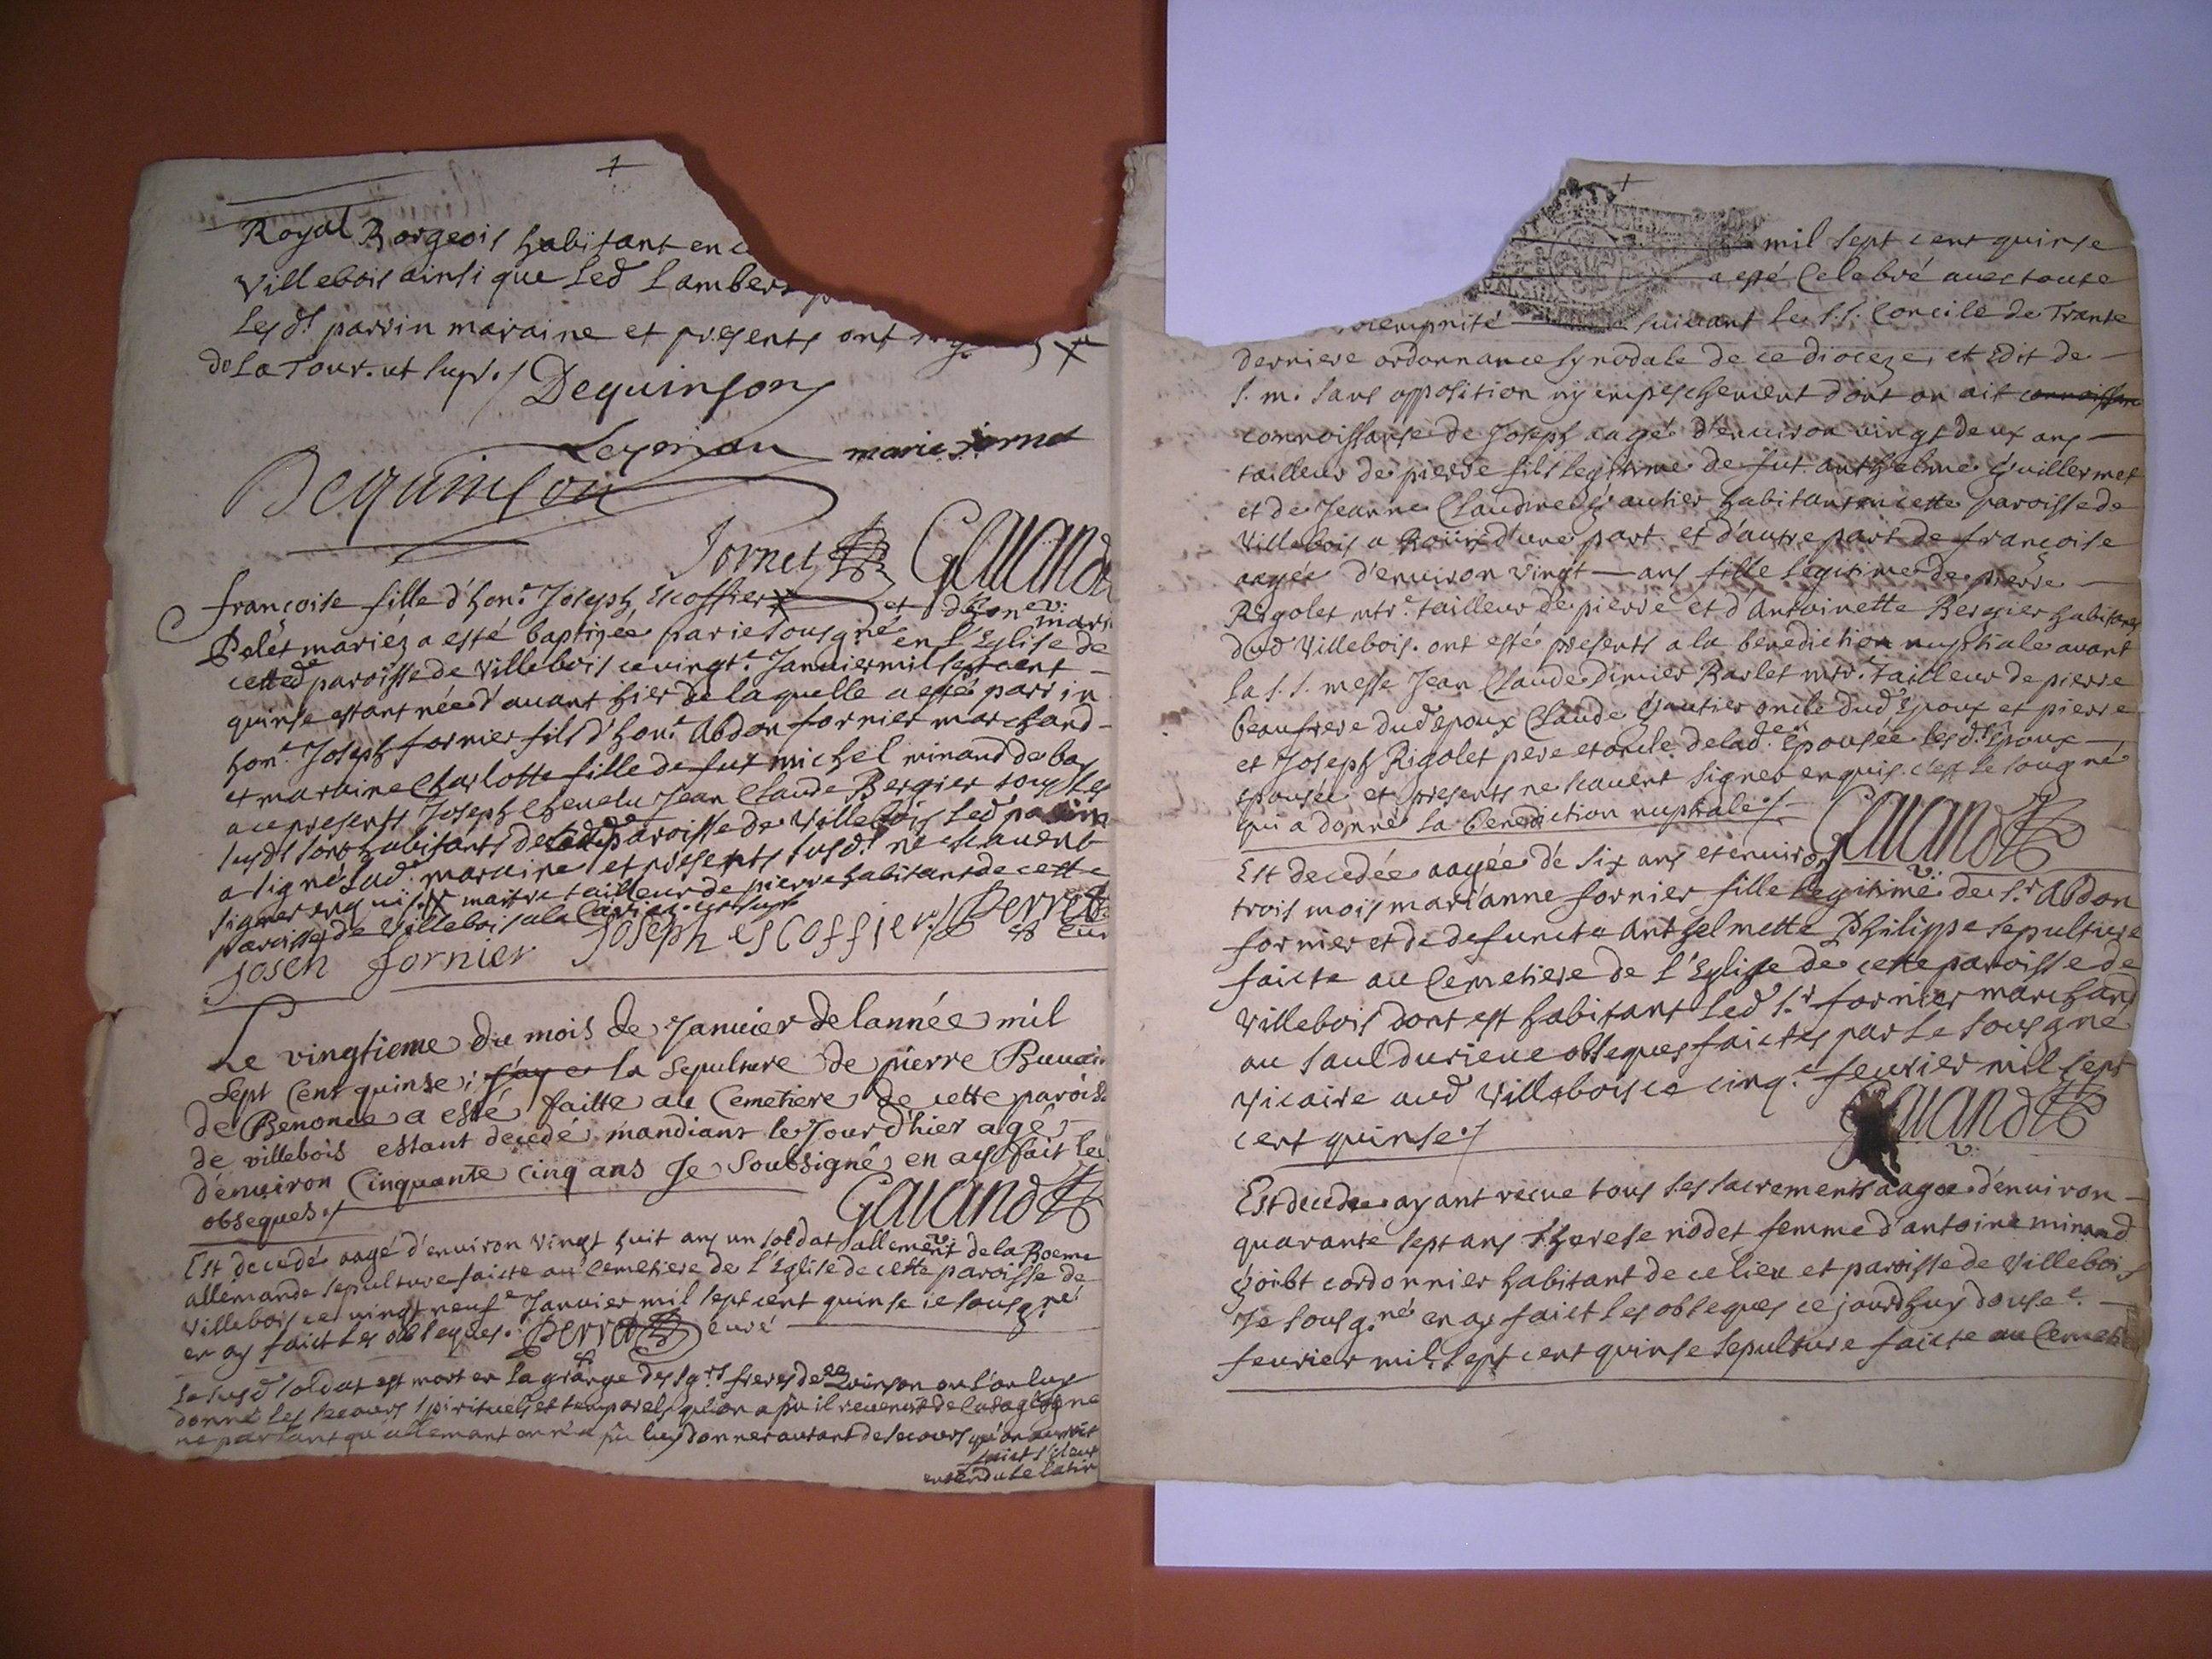 Royal Borgeois habitant en
Villebois ainsi que led Lambert
les dt parrin maraine et presents ont
de La Tour. ut sup. / Dequinson
marie Jornet
Dequinson
Jornet Gaiand
françoise fille d'hone Joseph Escoffier et d'hone
Pelet mariéz a esté baptizée par ie sousgné en l'Eglise de
cetted paroisse de Villebois ce vingte Januier mil sept cent
quinse estant née d'auant hier de laquelle a esté parrin
hone Joseph fornier fils d'hone Abdon fornier marchand
et maraine Charlotte fille de fut michel minand de bas
a ce presents Joseph Cheuelu Jean Claude Bergier tous les
susdt sont habitants de paroisse de Villebois led parrin
a signé lad maraine et presents susdt ne scauent
signer enquis. X maitre tailleur de pierre habitant de cette
paroisse de Villebois ut sup
Joseh fornier Joseph escoffier / Perret
Le vingtieme du mois de Januier de lannée mil
sept Cent quinse; j'ay la sepulture de pierre
de Benonce a esté faitte au Cemetiere de cette parois
de villebois estant decedé mandiant le Jour d'hier agé
d'enuiron Cinquante cinq ans Je Soubsigné en ay fait les
obseques / Gaiand
Est decedé aagé d'enuiron vingt huit ans un soldat allement de la Boeme
allemande sepulture faicte au Cemetiere de l'Eglise de cette paroisse de
Villebois ce vingt neufe Januier mil sept cent quinse ie sousgné
en ay faict les obseques. Perret curé
Le susd soldat est mort en la grange des sgrs freres de Quinson ou l'on luy
donné les secours spirituels et temporels qu'on a pu il reuenoit de
ne parlant qu'allemant on n'a pu luy donner autant de secours qu'on auroit
faict s'il eut
entendu le latin
mil sept cent quinse
a esté Celebré auec toute
suiuant le s.s. Concile de Trante
derniere ordonnance synodale de ce dioceze, et Edit de
s. m. sans opposition ny empeschement dont on ait connoissan
connoissanse de Joseph aagé d'enuiron vingt deux ans
tailleur de pierre fils legitime de fut anthelme Guillermet
et de Jeanne Claudine Gautier habitant en cette paroisse de
Villebois a Boüis d'une part et d'autre part de françoise
aagée d'enuiron vingt ans fille legitime de pierre
Rigolet mtre tailleur de pierre et d'Antoinette Bergier habitans
dud Villebois. ont esté presents a la benediction nuptiale auant
la s.s. messe Jean Claude Dimier Barlet mtre Tailleur de pierre
beaufrere dud epoux Claude Gautier oncle dud Epoux et pierre
et Joseph Rigolet pere et oncle de lad Epousée lesdt Epoux
epousée et presents ne scauent signer enquis. c'est le sougné
qui a donné la benediction nuptiale / Gaiand
Est decedée aagée de six ans et enuiron
trois mois marianne fornier fille legitime de sr Abdon
fornier et de defuncte Anthelmette Philippe sepulture
faicte au Cemetiere de l'Eglise de cette paroisse de
Villebois dont est habitant led sr fornier marchand
au Saul du rieue obseques faictes par le sousgné
vicaire aud Villebois ce cinqe feurier mil sept
cent quinse / Gaiand
Est decedée ayant recue tous ses sacrements aagée d'enuiron
quarante sept ans Therese nodet femme d'antoine minand
Goibt cordonnier habitant de ce lieu et paroisse de Villebois
Je sousgné en ay faict les obseques ce jourdhuy dousee
feurier mil sept cent quinse sepulture faicte au Cemeti